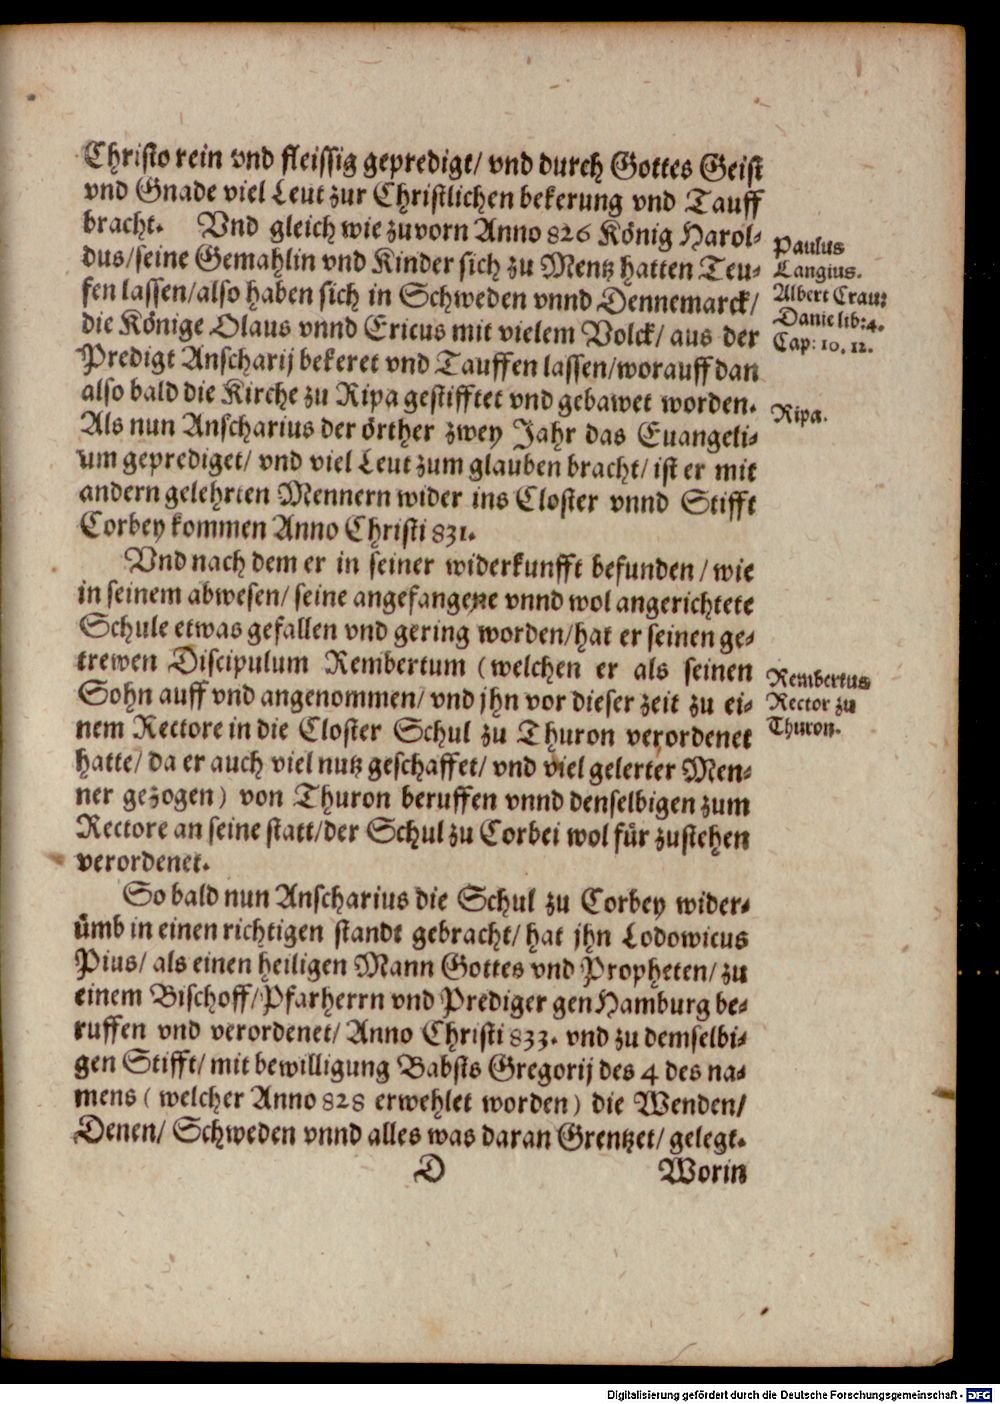 Christo rein vnd fleissig gepredigt/ vnd durch Gottes Geist
vnd Gnade viel Leut zur Christlichen bekerung vnd Tauff
bracht. Vnd gleich wie zuvorn Anno 826 König Harol-
dus/seine Gemahlin vnd Kinder sich zu Mentz hatten Teu-
fen lassen/also haben sich in Schweden vnnd Dennemarck/
die Könige Olaus vnnd Ericus mit vielem Volck/ aus der
Predigt Anscharij bekeret vnd Tauffen lassen/worauff dan
also bald die Kirche zu Ripa gestifftet vnd gebawet worden.
Als nun Anscharius der örther zwey Jahr das Euangeli-
um geprediget/ vnd viel Leut zum glauben bracht/ ist er mit
andern gelehrten Mennern wider ins Closter vnnd Stifft
Corbey kommen Anno Christi 831.
Vnd nach dem er in seiner widerkunfft befunden/ wie
in seinem abwesen/ seine angefangene vnnd wol angerichtete
Schule etwas gefallen vnd gering worden/hat er seinen ge-
trewen Discipulum Rembertum (welchen er als seinen
Sohn auff vnd angenommen/ vnd jhn vor dieser zeit zu ei-
nem Rectore in die Closter Schul zu Thuron verordenet
hatte/ da er auch viel nutz geschaffet/ vnd viel gelerter Men-
ner gezogen) von Thuron beruffen vnnd denselbigen zum
Rectore an seine statt/der Schul zu Corbei wol für zustehen
verordenet.
So bald nun Anscharius die Schul zu Corbey wider-
ümb in einen richtigen standt gebracht/ hat jhn Lodowicus
Pius/ als einen heiligen Mann Gottes vnd Propheten/ zu
einem Bischoff/Pfarherrn vnd Prediger gen Hamburg be-
ruffen vnd verordenet/ Anno Christi 833. vnd zu demselbi-
gen Stifft/ mit bewilligung Babsts Gregorij des 4 des na-
mens (welcher Anno 828 erwehlet worden) die Wenden/
Denen/ Schweden vnnd alles was daran Grentzet/ gelegt.
D Worin
Paulus
Langius.
Albert Cran:
Danie lib:4.
Cap: 10. 12.
Ripa.
Rembertus
Rector zu
Thuron.
Digitalisierung gefördert durch die Deutsche Forschungsgemeinschaft - DFG